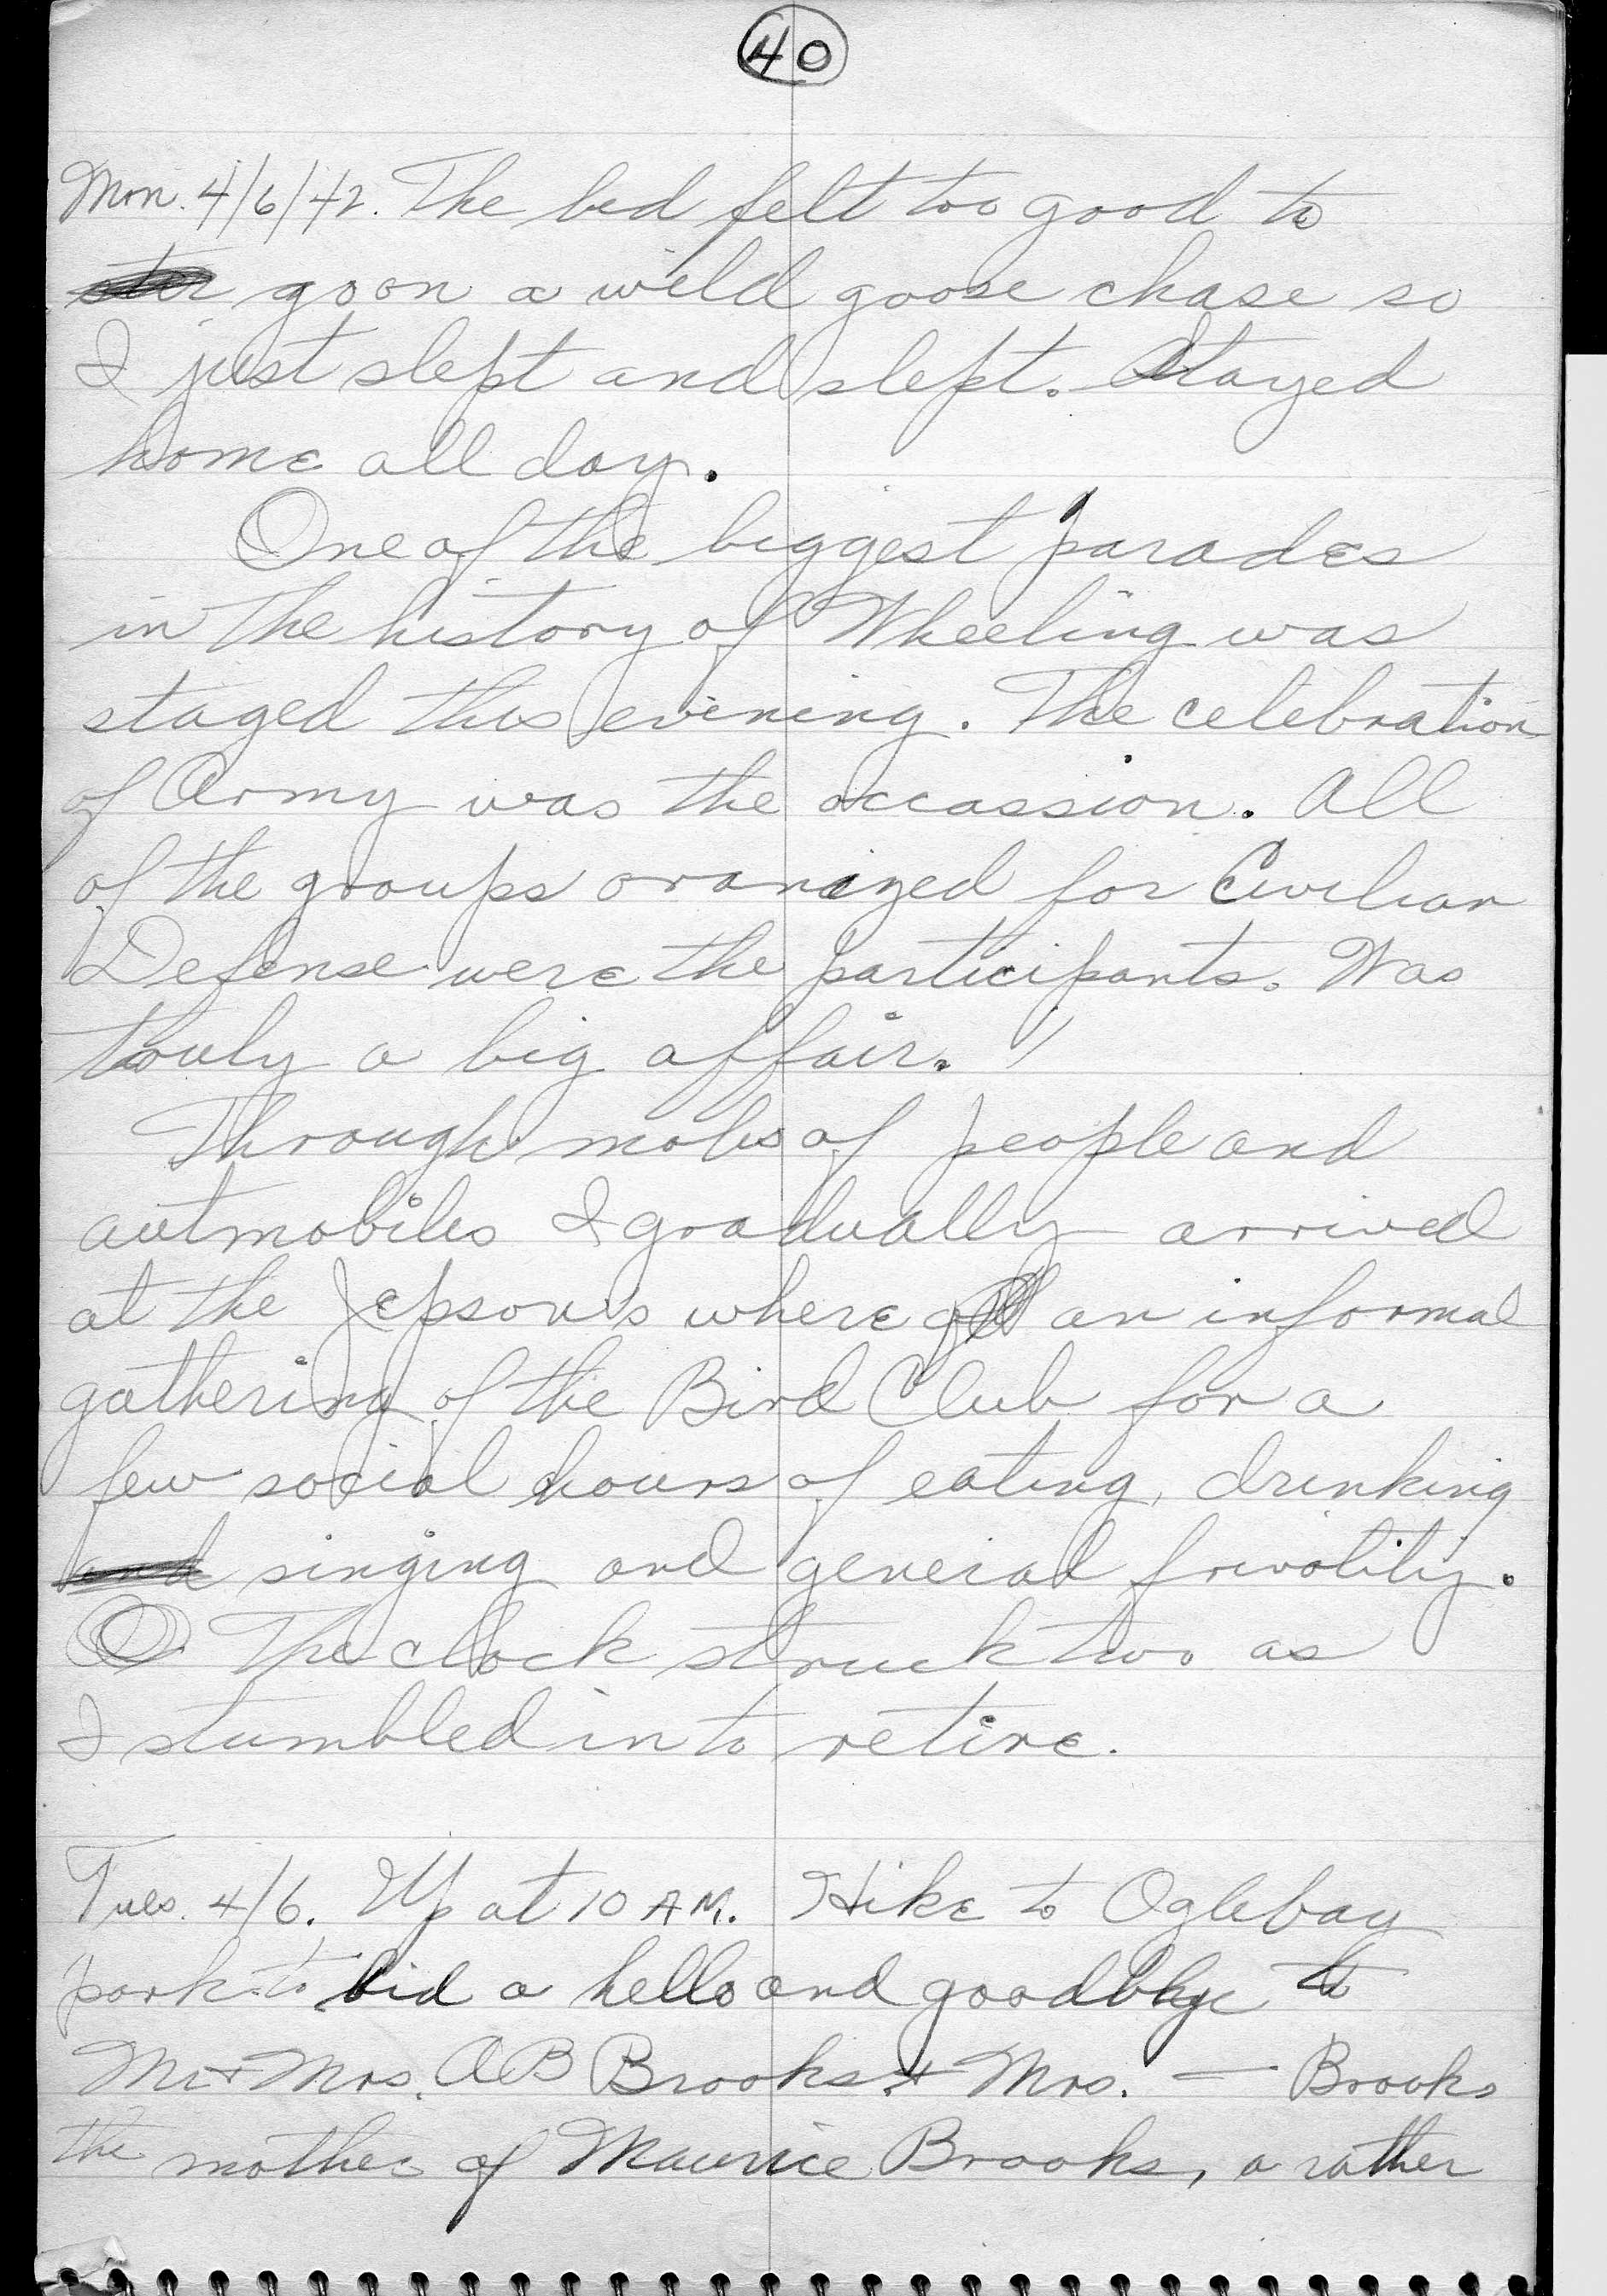 40
Mon. 4/6/42. The bed felt too good to
go on a wild goose chase so
I just slept and slept. Stayed
home all day.
One of the biggest parades
in the history of Wheeling was
staged this evening. The celebration
of Army was the occassion. All
of the groups oranized for Civilian
Defense were the participants. Was
truly a big affair.
Through mobs of people and
autmobiles I gradually arrived
at the Jepson's where an informal
gathering of the Bird Club for a
few social hours of eating, drinking
and singing and general frivolity.
The clock struck two as
I stumbled in to retire.
Tues. 4/6. Up at 10 AM. Hike to Oglebay
park to bid a hello and goodbye to
Mr + Mrs. AB Brooks + Mrs. — Brooks
the mother of Maurice Brooks, a rather